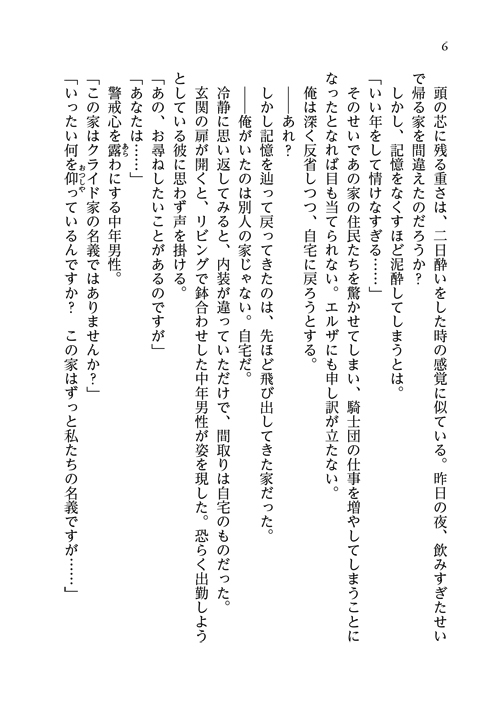 6
頭の芯に残る重さは、二日酔いをした時の感覚に似ている。昨日の夜、飲みすぎたせい
で帰る家を間違えたのだろうか？
しかし、記憶をなくすほど泥酔してしまうとは。
「いい年をして情けなすぎる……」
そのせいであの家の住民たちを驚かせてしまい、騎士団の仕事を増やしてしまうことに
なったとなれば目も当てられない。エルザにも申し訳が立たない。
俺は深く反省しつつ、自宅に戻ろうとする。
――あれ？
しかし記憶を辿って戻ってきたのは、先ほど飛び出してきた家だった。
――俺がいたのは別人の家じゃない。自宅だ。
冷静に思い返してみると、内装が違っていただけで、間取りは自宅のものだった。
玄関の扉が開くと、リビングで鉢合わせした中年男性が姿を現した。恐らく出勤しよう
としている彼に思わず声を掛ける。
「あの、お尋ねしたいことがあるのですが」
「あなたは……」
警戒心を露わにする中年男性。
「この家はクライド家の名義ではありませんか？」
「いったい何を仰っているんですか？　この家はずっと私たちの名義ですが……」